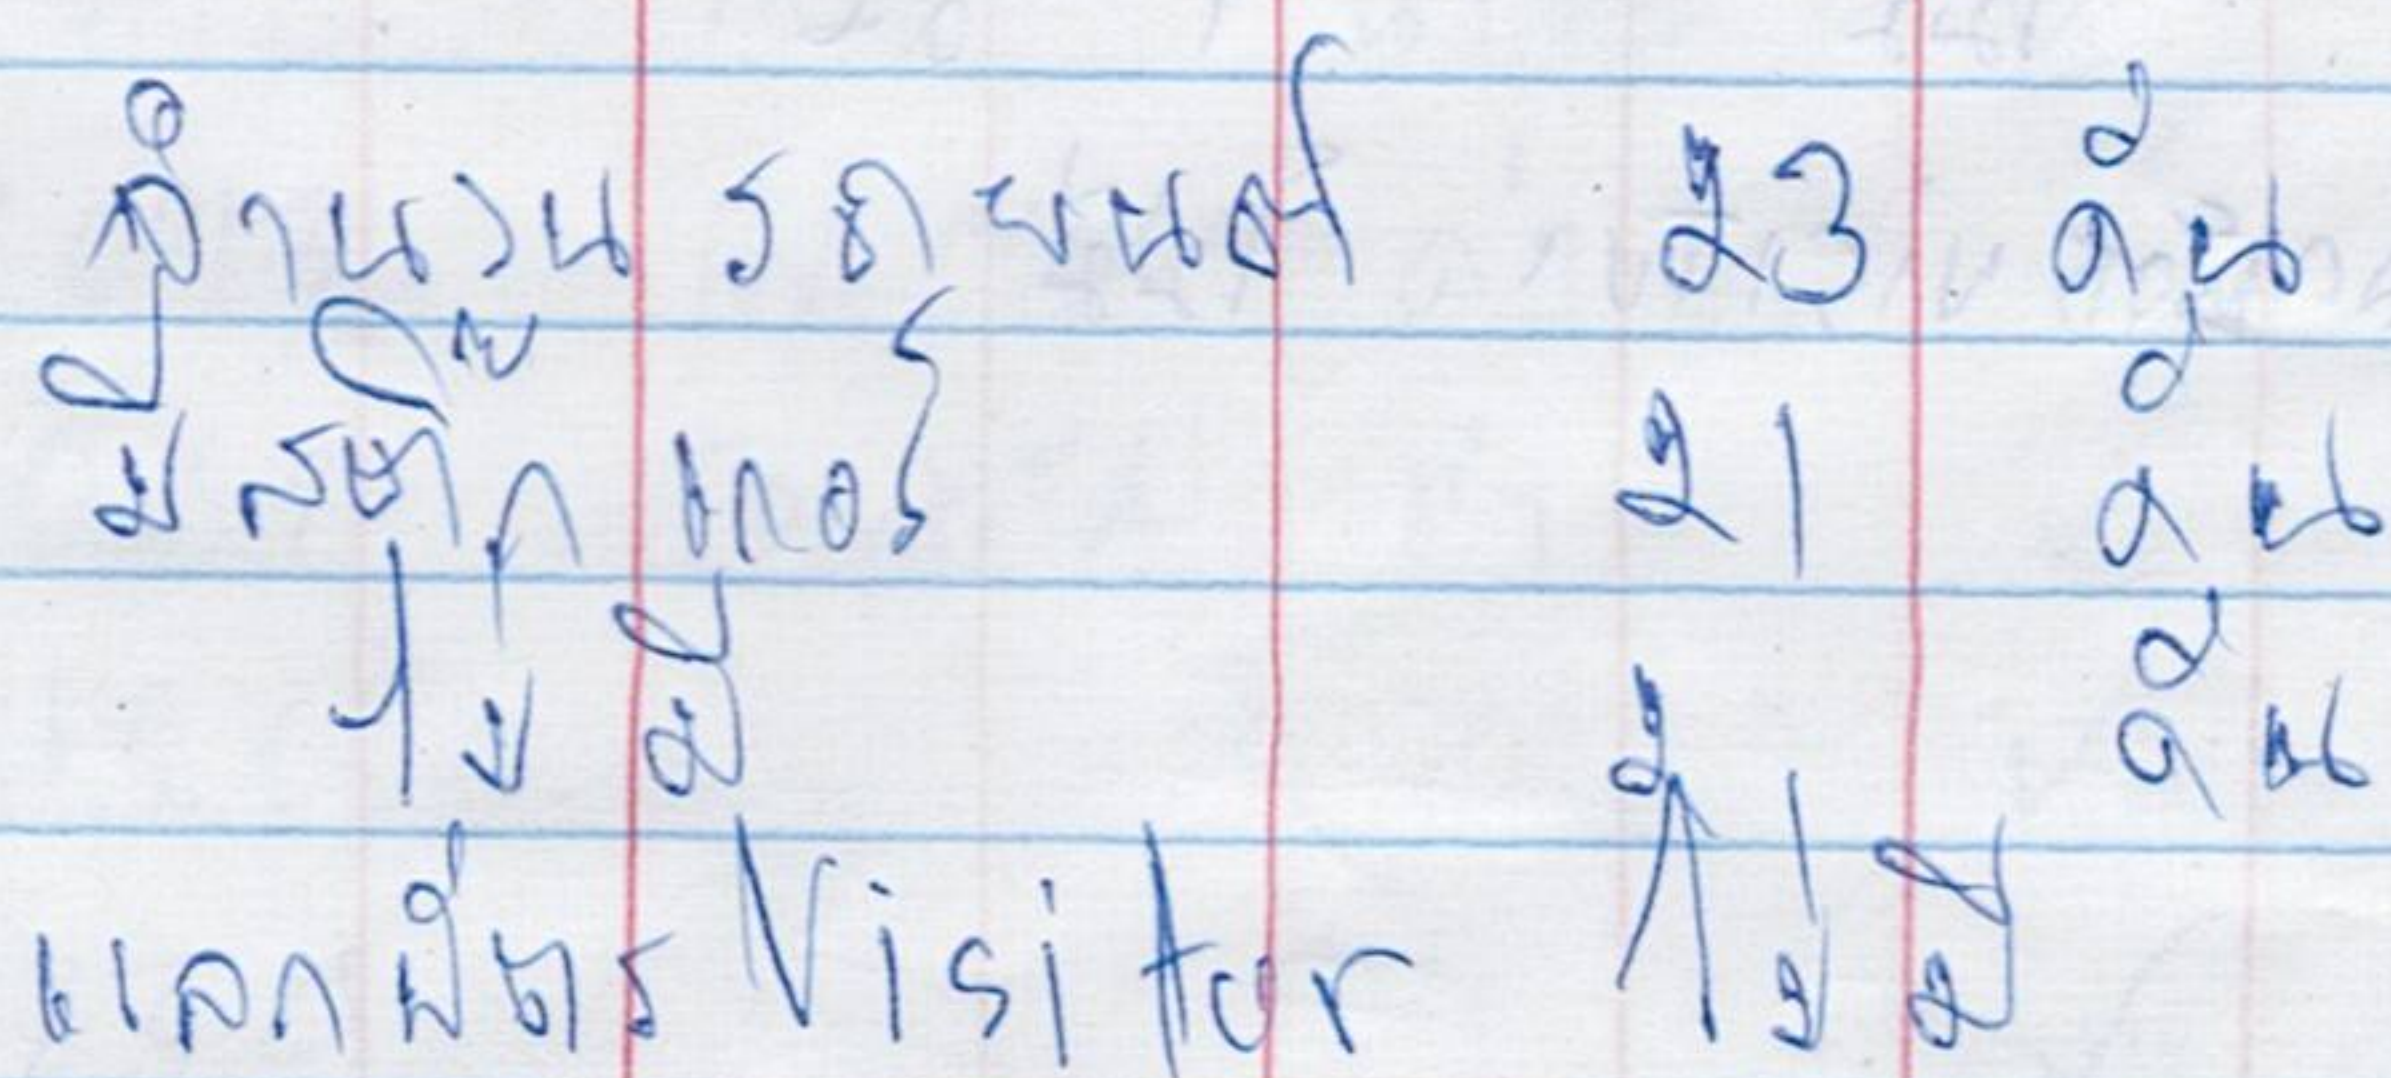 จำนวน รถยนต์ 23 คัน
มีสติ๊กเกอร์ 21 คัน
ไม่มี 2 คัน
แลกบัตร Visitor ไม่มี